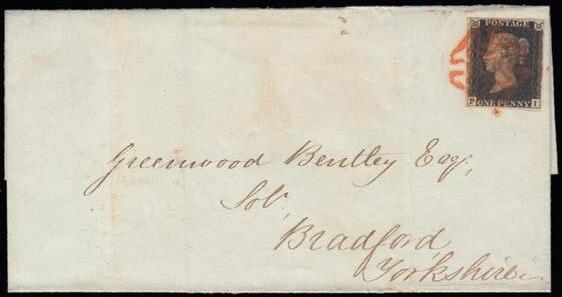 POSTAGE
P ONE PENNY I
Greenwood Bentley Esqr,
Solr,
Bradford,
Yorkshire